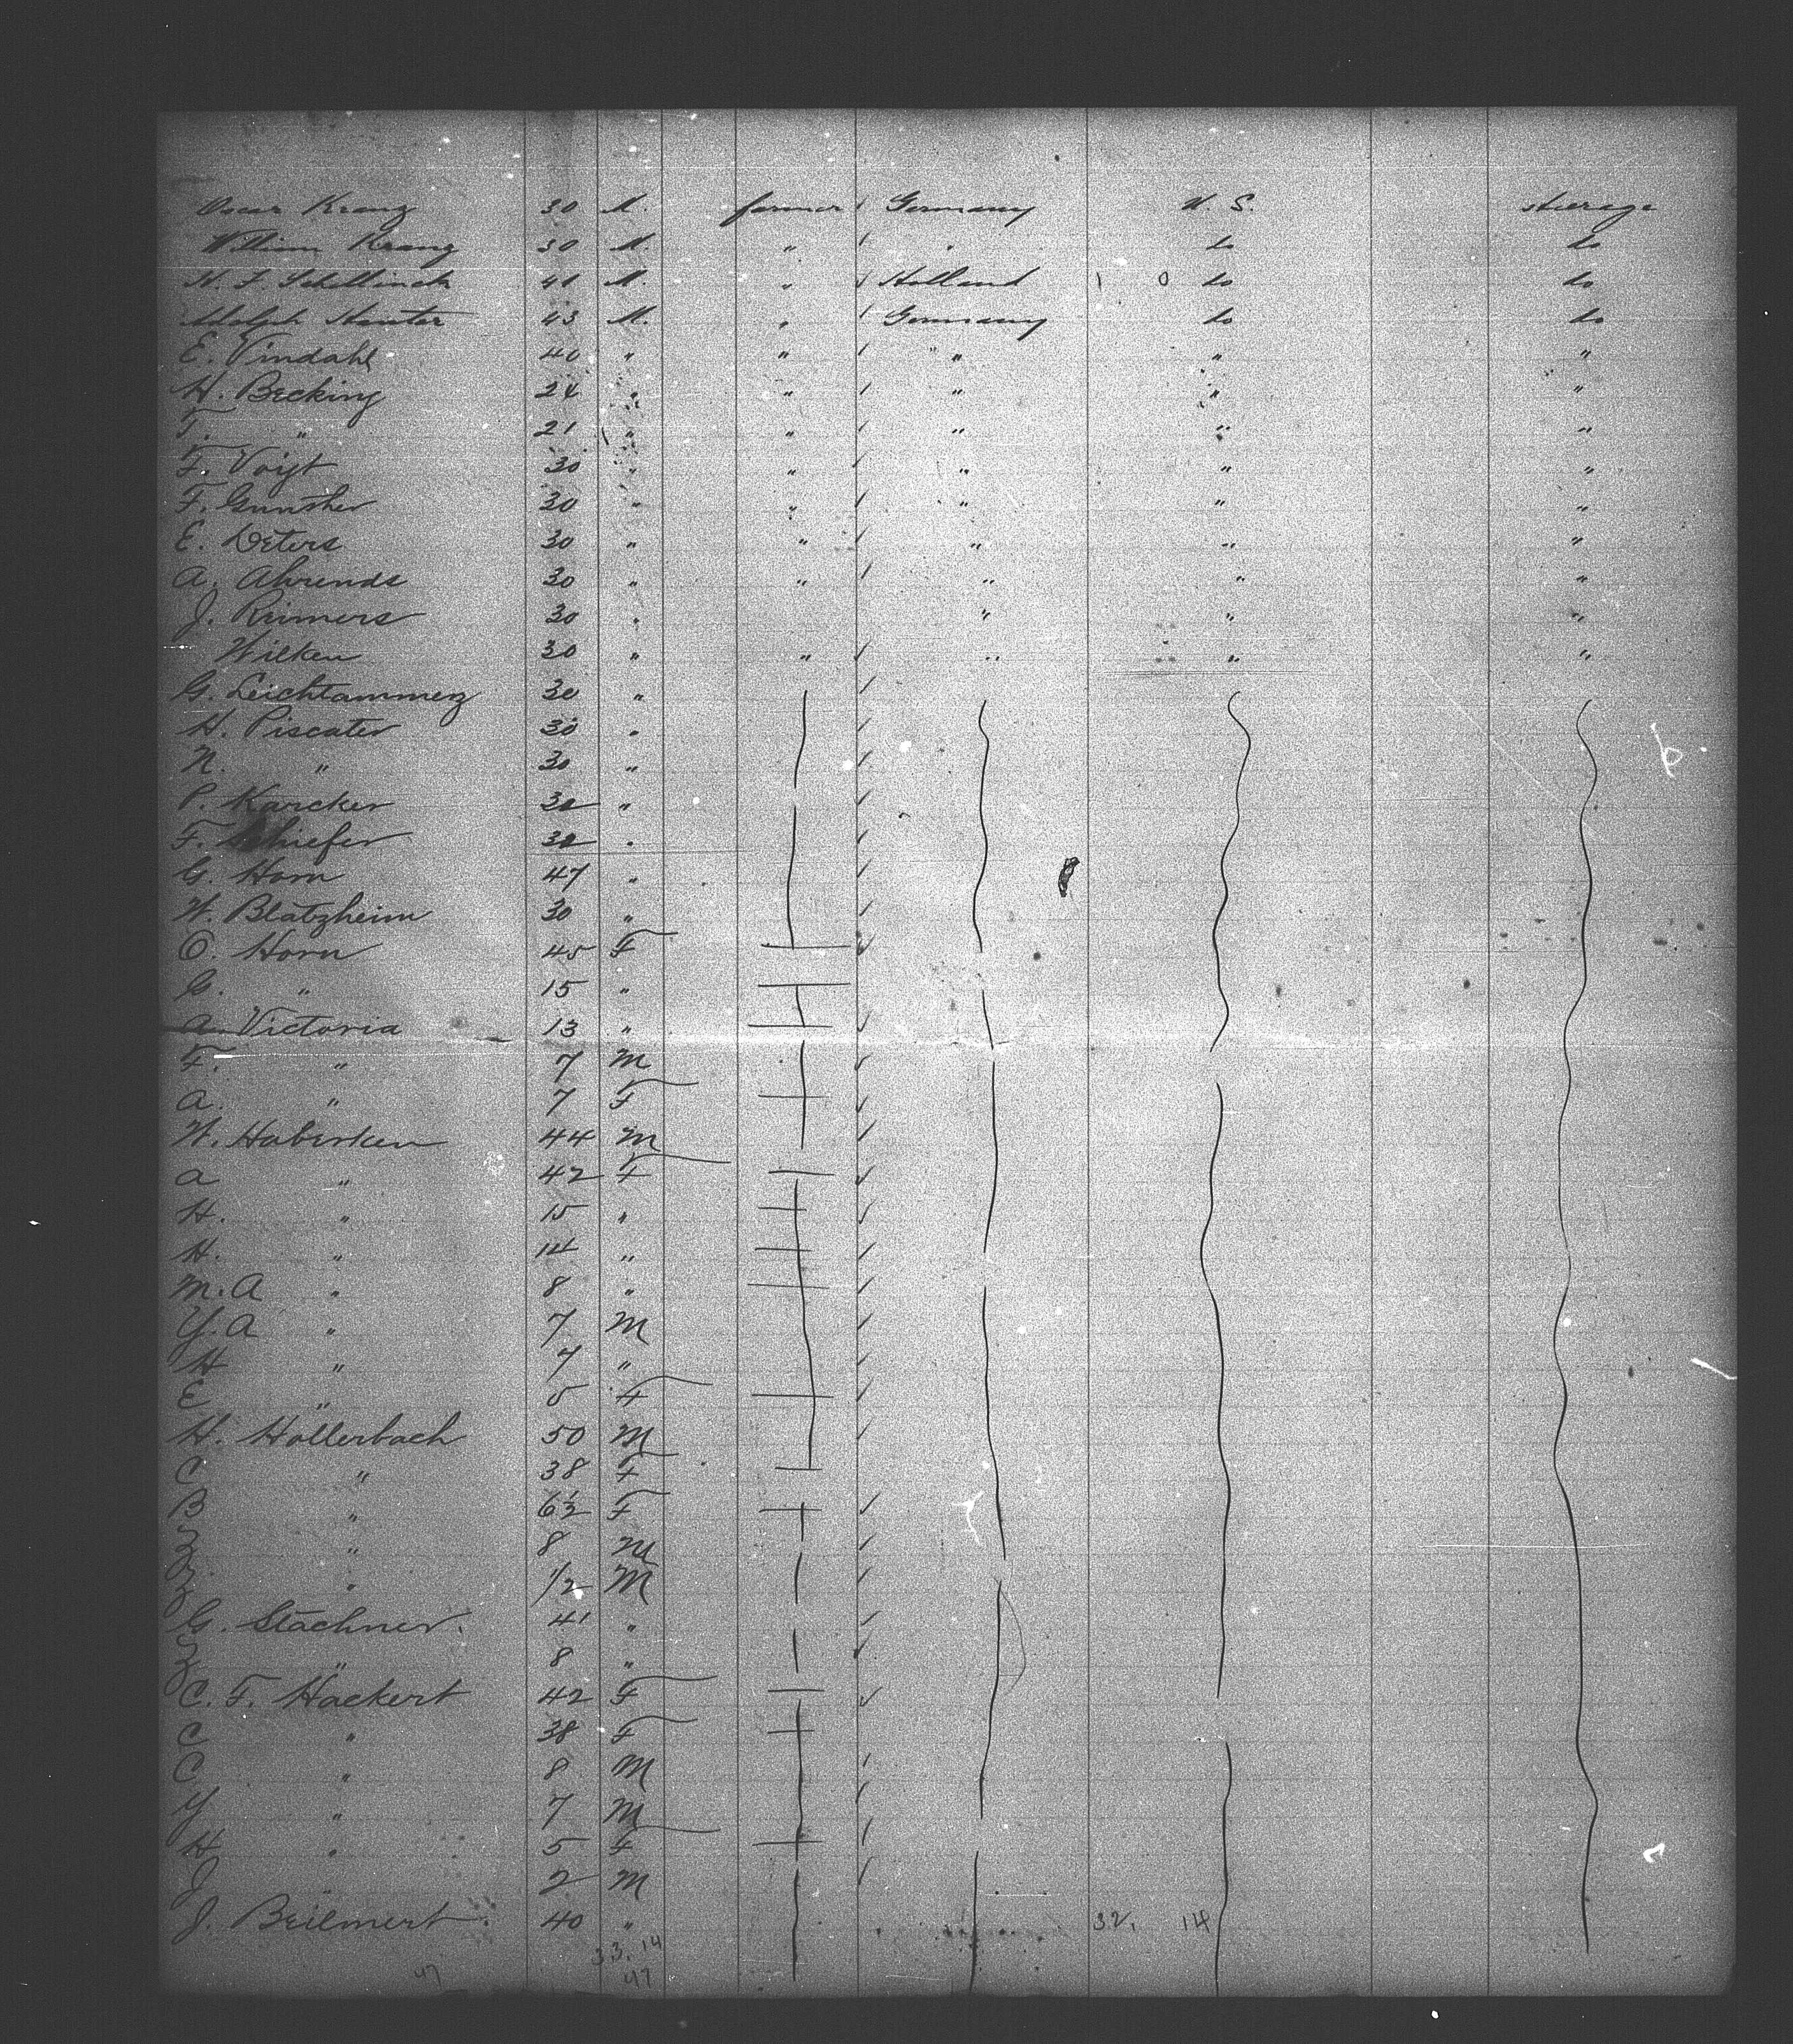 Oscar Kranz 30 M. farmer Germany U. S. steerage
William Kranz 30 M. " " do do
H. F. Schellinck 41 M. " Holland 1 0 do do
Adolph Hunter 43 M. " Germany do do
E. Vindahl 40 " " " " " "
H. Becking 24 " " " " "
F. " 21 " " " " "
F. Voigt 30 " " " " "
F. Gunther 30 " " " " "
E. Deters 30 " " " " "
A. Ahrends 30 " " " " "
J. Reimers 30 " " " "
Wilken 30 " " " " "
G. Leichtammerz 30 "
H. Piscater 30 "
N. " 30 "
P. Karcker 30 "
F. Schiefer 30 "
G. Horn 47 "
W. Blatzheim 30 "
O. Horn 45 F
G. " 15 "
A. Victoria 13 "
F. " 7 M
A. " 7 F
W. Haberken 44 M
A " 42 F
H. " 15 "
H. " 14 "
M. A " 8 "
Y. A " 7 M
H " 7 "
E " 5 F
H. Hollerbach 50 M
C " 38 F
B " 6½ F
" 8 M
" 1/2 M
G. Stachner. 41 "
" 8 "
C. F. Hackert 42 F
C " 38 F
C " 8 M
Y " 7 M
H " 5 F
J " 2 M
J. Beilmert. 40 " 32, 14
33. 14
47 47